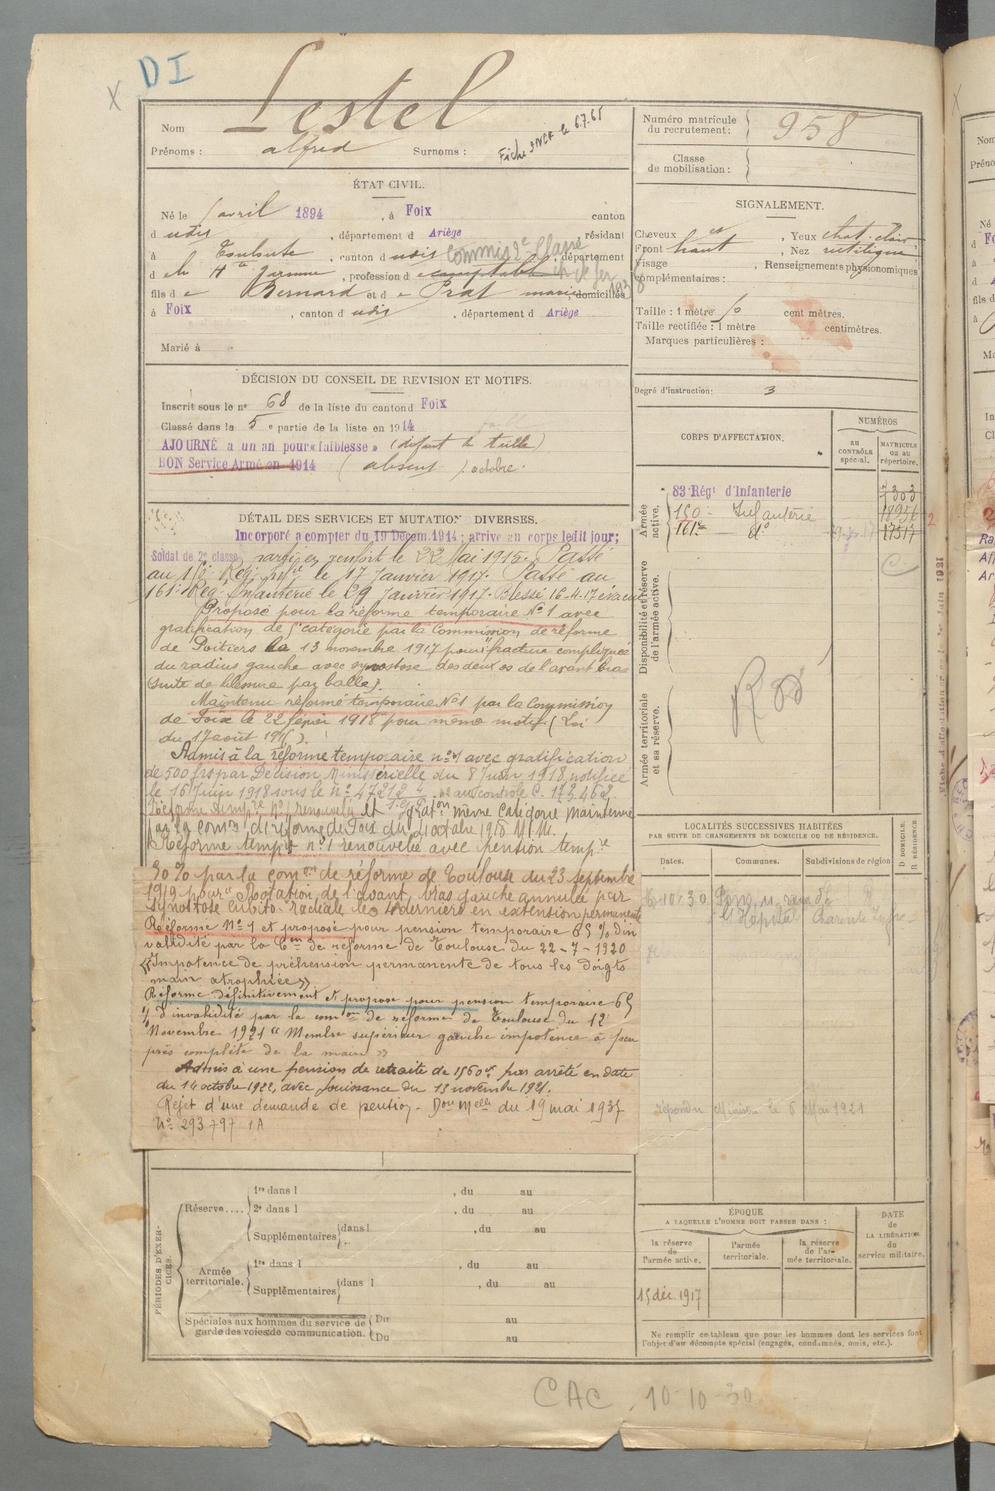 X DI
Nom Lestel
Prénoms : alfred Surnoms : Fiche SNCF le 6.7.65
ÉTAT CIVIL.
Né le avril 1894, à Foix canton
d udit, département d Ariège, résidant
à Toulouse, canton d udit, département
Commis 2e Classe
d de la Hte Garonne, profession de comptable
fils de Bernard et de Prat domiciliés
à Foix, canton d udit, département d Ariège
Marié à
DÉCISION DU CONSEIL DE REVISION ET MOTIFS.
Inscrit sous le n° 68 de la liste du canton d Foix
Classé dans la 5e partie de la liste en 1914
AJOURNÉ a un an pour « faiblesse » (défaut de taille)
BON Service Armé en 1914 (absent) octobre.
DÉTAIL DES SERVICES ET MUTATIONS DIVERSES.
Incorporé a compter du 19 Décem. 1914; arrive au corps ledit jour;
Soldat de 2e classe, parti en renfort le 22 Mai 1915. Passé
au 150 Rég. Infie le 17 Janvier 1917. Passé au
161e Rég. Infanterie le 29 Janvier 1917. Blessé 16.4.17 évacué
Proposé pour la réforme temporaire N°1 avec
gratification de 5e catégorie par la Commission de réforme
de Poitiers le 13 novembre 1917 pour "fracture compliquée
du radius gauche avec synostose des deux os de l'avant bras
(suite de blessure par balle).
Maintenu réformé temporaire N°1 par la Commission
de Foix le 22 février 1918 pour même motif (Loi
du 17 août 1915).
Admis à la réforme temporaire n°1 avec gratification
de 500 frs par Décision Ministérielle du 8 Juin 1918, notifiée
le 16 Juin 1918 sous le N° au contrôle C. 113.468.
Réforme tempre N°1 renouvelée et graton même catégorie maintenue
par la comon de réforme de Foix du octobre 1918
Réforme tempre n°1 renouvelée avec pension tempre
50 % par la comon de réforme de Toulouse du 23 septembre
1919 pour "Rotation de l'avant bras gauche annulée par
synostose cubito-radiale les 4 derniers en extension permanente
Réforme N°1 et proposé pour pension temporaire 65 % d'in
validité par la Con de réforme de Toulouse du 22-7-1920
«Impotence de préhension permanente de tous les doigts
main atrophiée»
Réformé définitivement et proposé pour pension temporaire 65
% d'invalidité par la comon de réforme de Toulouse du 12
Novembre 1921 "Membre supérieur gauche impotence à peu
près complète de la main »
Admis à une pension de retraite de 1560f par arrêté en date
du 14 octobre 1922, avec jouissance du 13 novembre 1921.
Rejet d'une demande de pension - Don Melle du 19 mai 1937
N° 293797 1A
PÉRIODES D'EXERCICES.
Réserve....
1re dans l, du au
2e dans l, du au
Supplémentaires dans l, du au
Armée territoriale.
1re dans l, du au
Supplémentaires dans l, du au
Spéciales aux hommes du service de garde des voies de communication.
Du au
Du au
Numéro matricule du recrutement : 958
Classe de mobilisation :
SIGNALEMENT.
Cheveux, Yeux chat. clair
Front haut, Nez rectiligne
Visage, Renseignements physionomiques
complémentaires :
Taille : 1 mètre 50 centimètres.
Taille rectifiée : 1 mètre centimètres.
Marques particulières :
Degré d'instruction : 3
CORPS D'AFFECTATION.
NUMÉROS
AU CONTRÔLE spécial.
MATRICULE OU AU répertoire.
Armée active.
83 Régt d'Infanterie 7303
150e Infanterie 18956
161e do 17517
Disponibilité et réserve de l'armée active.
Armée territoriale et sa réserve.
Rd
LOCALITÉS SUCCESSIVES HABITÉES
PAR SUITE DE CHANGEMENTS DE DOMICILE OU DE RÉSIDENCE.
Dates. Communes. Subdivisions de région D DOMICILE. R RÉSIDENCE.
10.30 Pons,
l'Hôpital Charente Infre
répondu Mission le 6 Mai 1921
ÉPOQUE
A LAQUELLE L'HOMME DOIT PASSER DANS :
la réserve de l'armée active.
l'armée territoriale.
la réserve de l'armée territoriale.
DATE de LA LIBÉRATION du service militaire.
15 déc. 1917
Ne remplir ce tableau que pour les hommes dont les services font
l'objet d'un décompte spécial (engagés, condamnés, omis, etc.).
CAC. 10-10-30